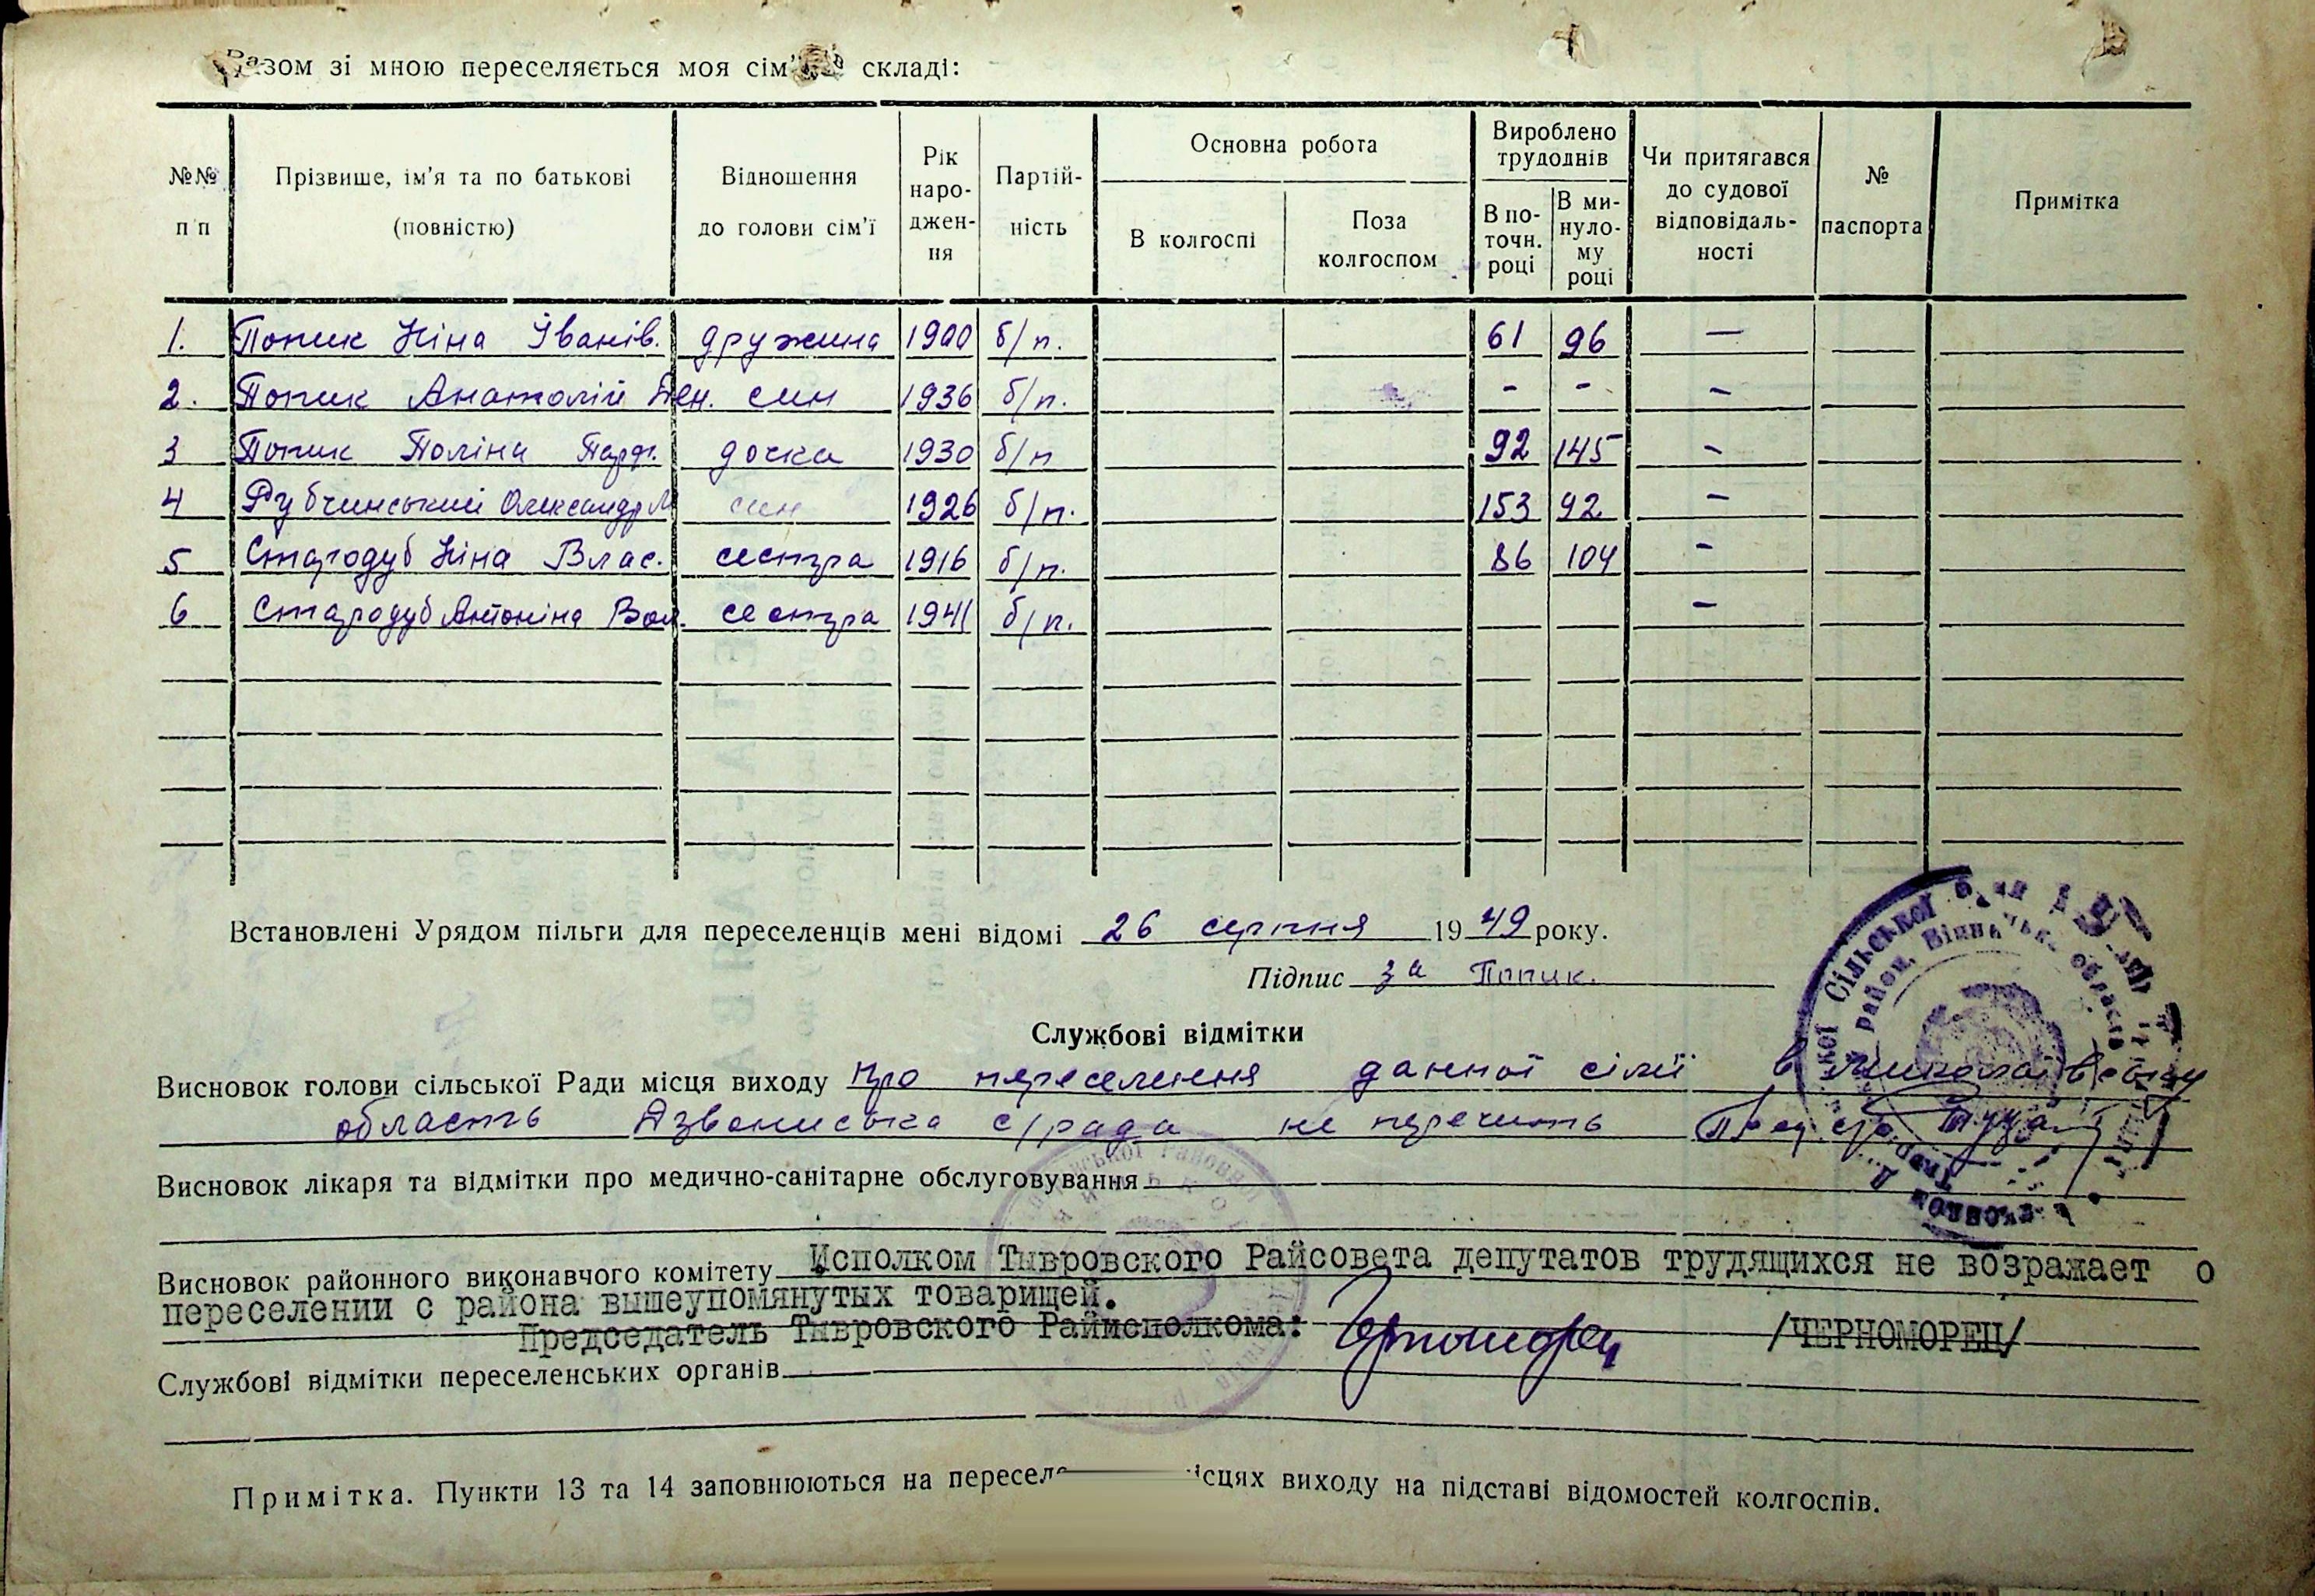 Разом зі мною переселяється моя сім'я в складі:
№№ п п
Прізвише, ім'я та по батькові (повністю)
Відношення до голови сім'ї
Рік народження
Партійність
Основна робота
В колгоспі
Поза колгоспом
Вироблено трудоднів
В поточн. році
В минулому році
Чи притягався до судової відповідальності
№ паспорта
Примітка
1. Попик Ніна Іванів. дружина 1900 б/п. 61 96 —
2. Попик Анатолій син 1936 б/п. - - -
3 Попик Поліна Парф. дочка 1930 б/п 92 145 -
4 Рубчинський Олександр М син 1926 б/п. 153 92 -
5 Стародуб Ніна Влас. сестра 1916 б/п. 86 104 -
6 Стародуб Антоніна Вол. сестра 1941 б/п. -
Встановлені Урядом пільги для переселенців мені відомі 26 серпня 1949 року.
Підпис за Попик.
Службові відмітки
Висновок голови сільської Ради місця виходу про переселення данної сімії в миколаївську
область с/рада не перечить
Висновок лікаря та відмітки про медично-санітарне обслуговування
Висновок районного виконавчого комітету Исполком Тывровского Райсовета депутатов трудящихся не возражает о
переселении с района вышеупомянутых товарищей.
Председатель Тывровского Райисполкома: /ЧЕРНОМОРЕЦ/
Службові відмітки переселенських органів
Примітка. Пункти 13 та 14 заповнюються на виходу на підставі відомостей колгоспів.